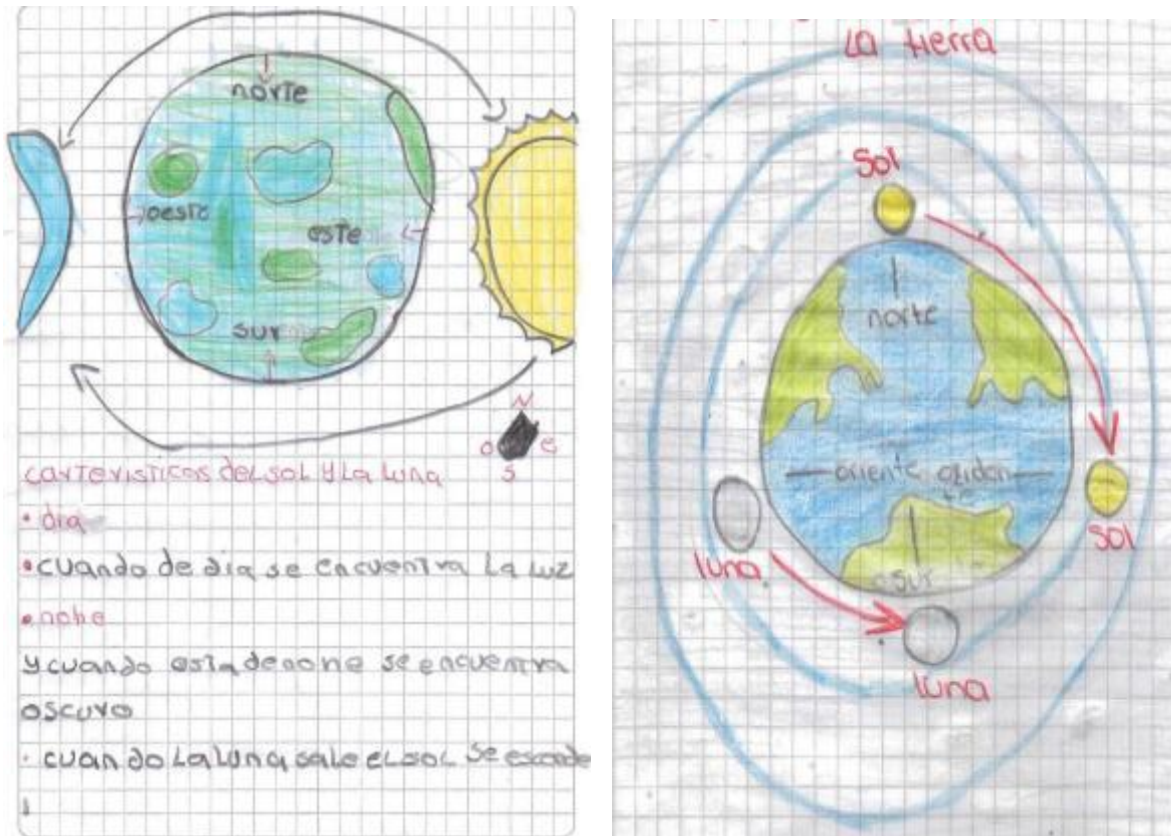 norte
oeste
este
sur
N
O e
S
carteristicas del sol y La Luna
• dia
• cuando de dia se encuentra La Luz
• nohe
y cuando esta de none se encuentra
oscuro
• cuando La Luna sale el sol se esconde
La tierra
Sol
norte
oriente
sur
luna
sol
luna